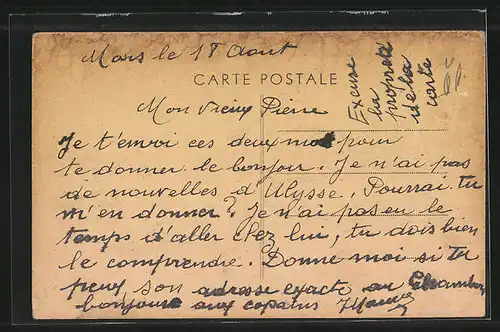 Mars le 18 Aout
CARTE POSTALE
Excuse
la
propreté
de la
carte
Mon vieux Pierre
Je t'envoi ces deux mot pour
te donner le bonjour. Je n'ai pas
de nouvelles d'Ulysse. Pourrai-tu
m'en donner? Je n'ai pas eu le
temps d'aller chez lui, tu dois bien
le comprendre. Donne moi si tu
peux, son adresse exacte au
bonjour aux copains